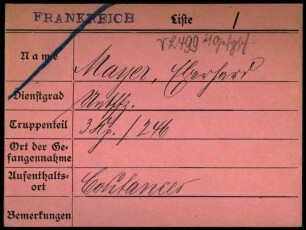 FRANKREICH Liste 1
Name Mayer, Eberhard
Dienstgrad Untffz.
Truppenteil 3 Kp. / 246
Ort der Ge-
fangennahme
Aufenthalts-
ort Coutances
Bemerkungen